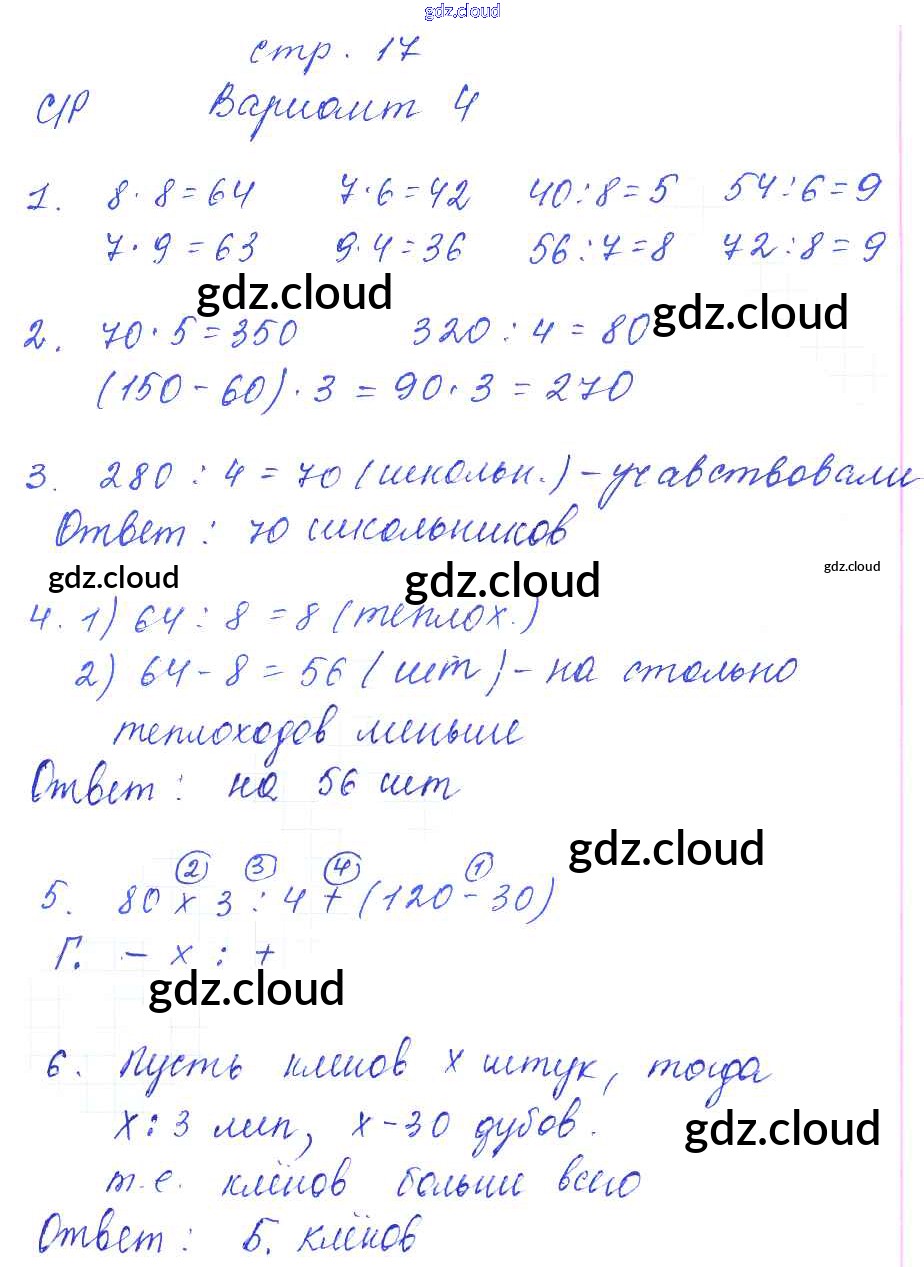 gdz.cloud
стр. 17
С/Р Вариант 4
1. 8·8=64 7·6=42 40:8=5 54:6=9
7·9=63 9·4=36 56:7=8 72:8=9
gdz.cloud gdz.cloud
2. 70·5=350 320:4=80
(150-60)·3=90·3=270
3. 280:4=70 (школьн.) - учавствовали
Ответ: 70 школьников
gdz.cloud gdz.cloud gdz.cloud
4. 1) 64:8=8 (теплох.)
2) 64-8=56 (шт) - на столько
теплоходов меньше
Ответ: на 56 шт
gdz.cloud
2 3 4 1
5. 80 x 3 : 4 + (120-30)
Г. - x : +
gdz.cloud
6. Пусть кленов x штук, тогда
x:3 лип, x-30 дубов.
gdz.cloud
т.е. клёнов больше всего
Ответ: Б. клёнов